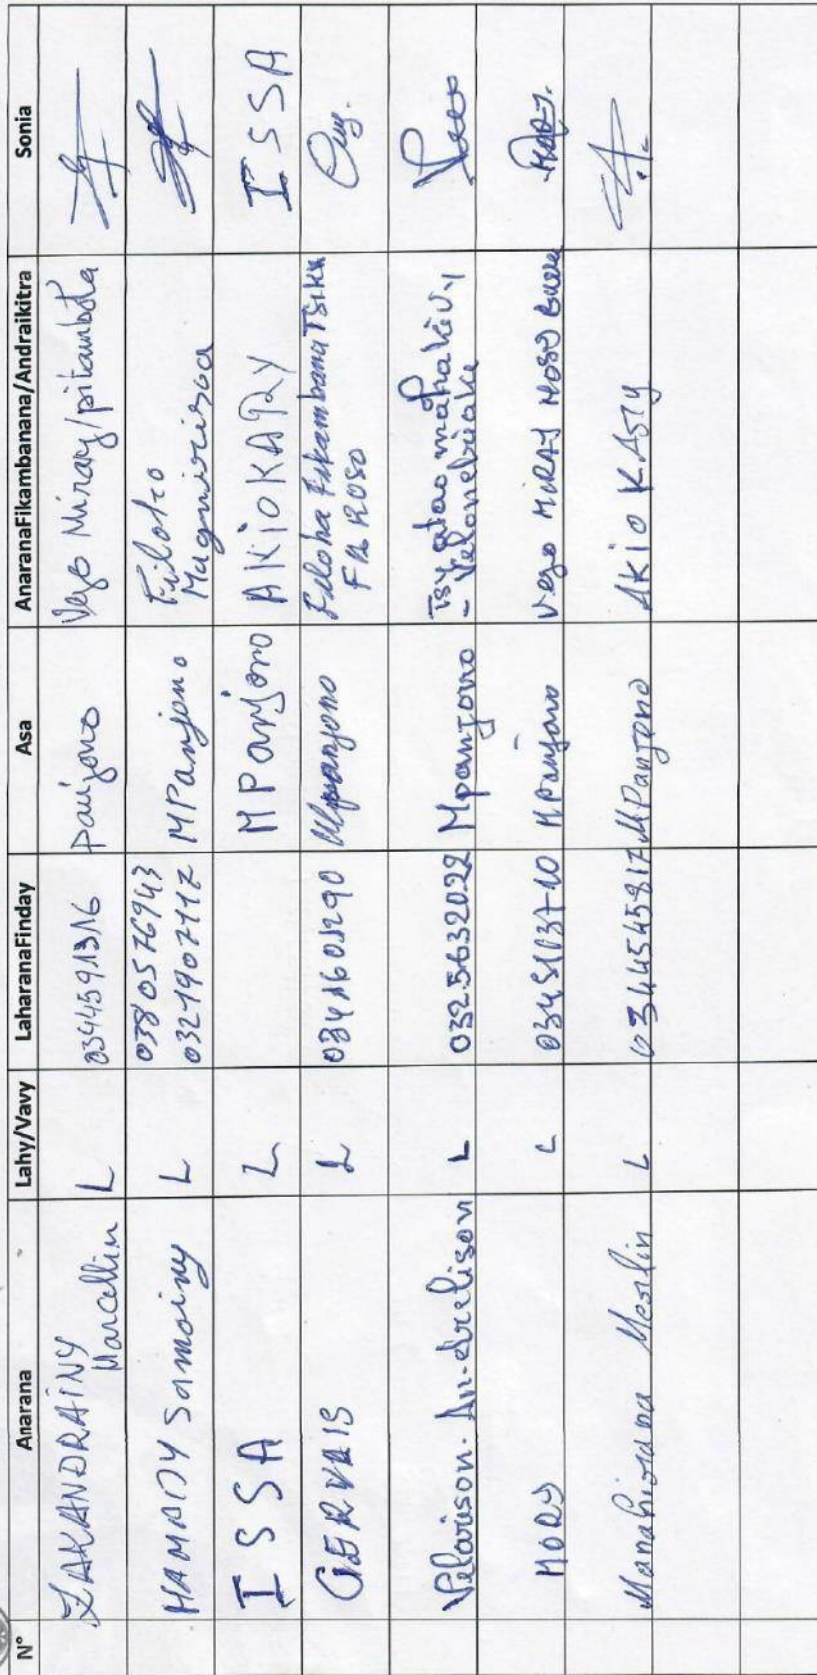 N° Anarana Lahy/Vavy LaharanaFinday Asa AnaranaFikambanana/Andraikitra Sonia
ZAKANDRAINY Marcellin L 0344591316 panjono Vezo Miray/pitambola
HAMADY Samoiny L 0380576943 0321907112 MPanjono Filoha
ISSA L MPanjono AKIOKARY ISSA
GERVAIS L 0341601290 Mpanjono Filoha Fikambana TSIKA FA ROSO
Velarison. Andrelison L 0325632022 Mpanjono Tsy atao mahakivy - Velondriake
MORY L 0345103710 MPanjono Vezo MIRAY NOSY MORY.
Manahirana Merlin L 0344545817 MPanjono AKIO KARY